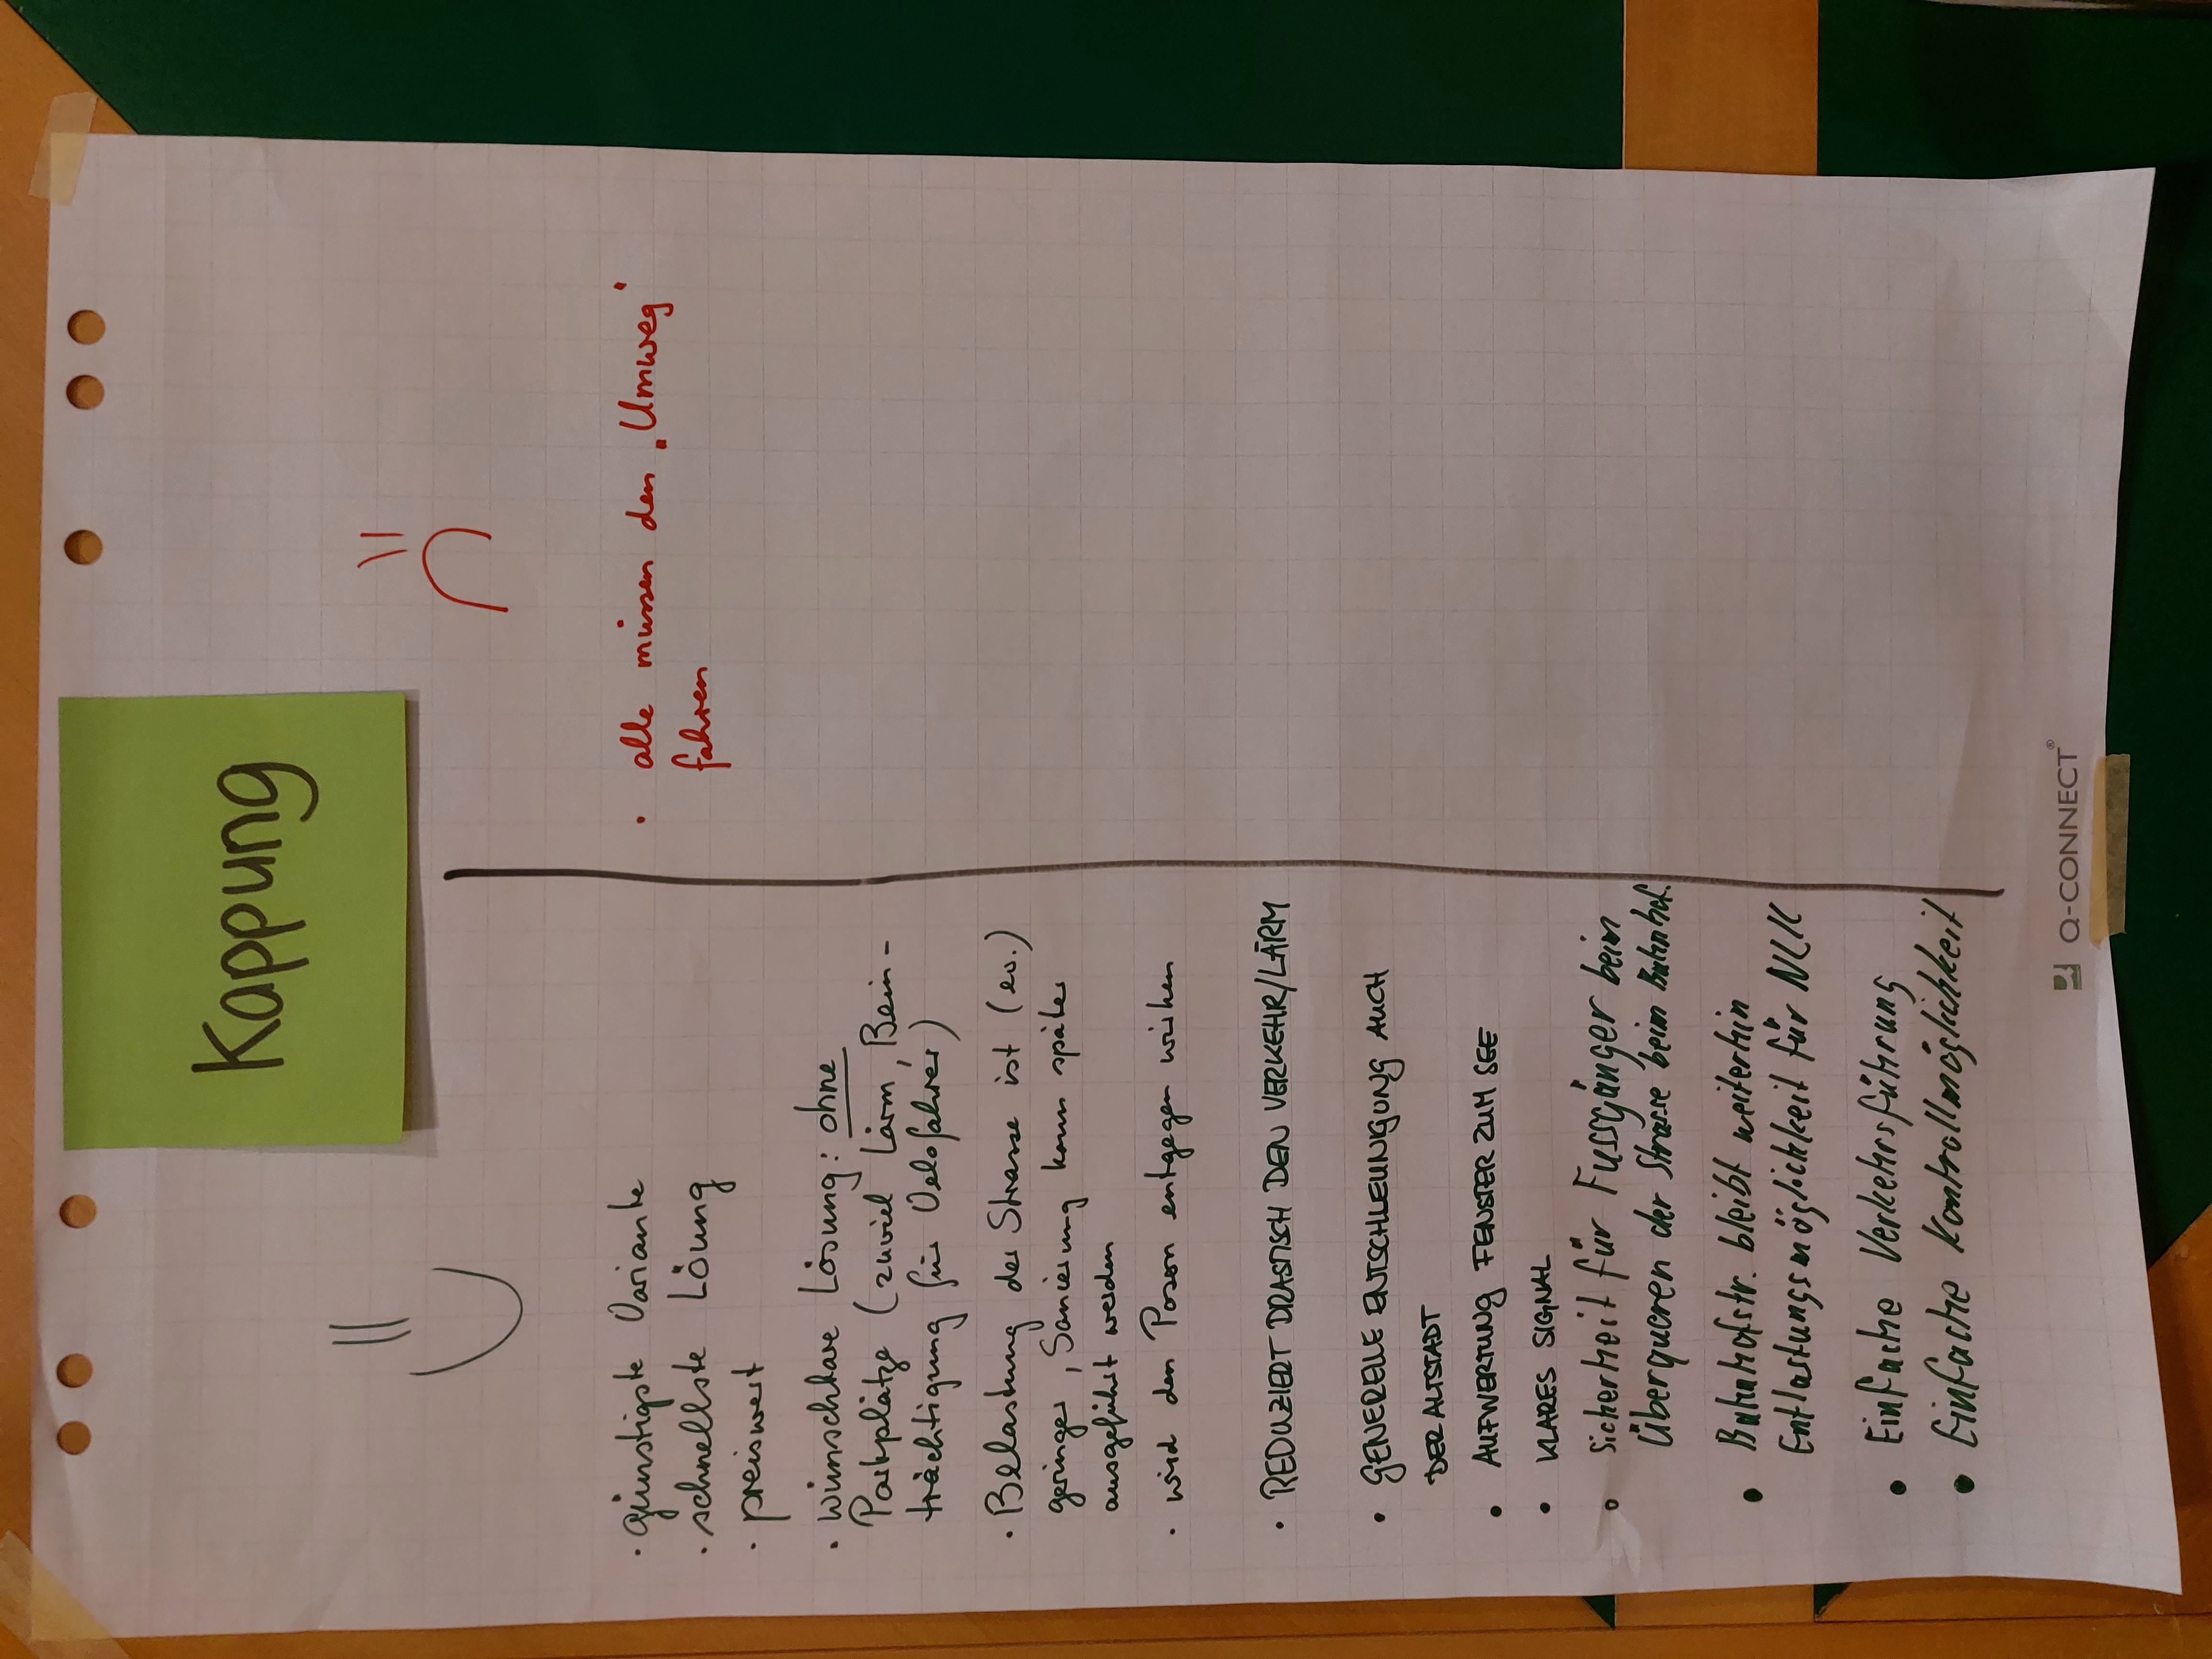 Kappung
· günstigste Variante
· schnellste Lösung
· preiswert
· wünschbare Lösung: ohne
Parkplätze (zuviel Lärm, Bein-
trächtigung für Velofahrer)
· Belastung der Strasse ist (ev.)
geringer, Sanierung kann später
ausgeführt werden
· wird den Posern entgegen wirken
· REDUZIERT DRASTISCH DEN VERKEHR/LÄRM
· GENERELLE ENTSCHLEUNIGUNG AUCH
DER ALTSTADT
· AUFWERTUNG FENSTER ZUM SEE
· KLARES SIGNAL
· Sicherheit für Fussgänger beim
Überqueren der Strasse beim Bahnhof.
· Bahnhofstr. bleibt weiterhin
Entlastungsmöglichkeit für NLK
· Einfache Verkehrsführung
· Einfache Kontrollmöglichkeit
· alle müssen den „Umweg"
fahren
Q-CONNECT®